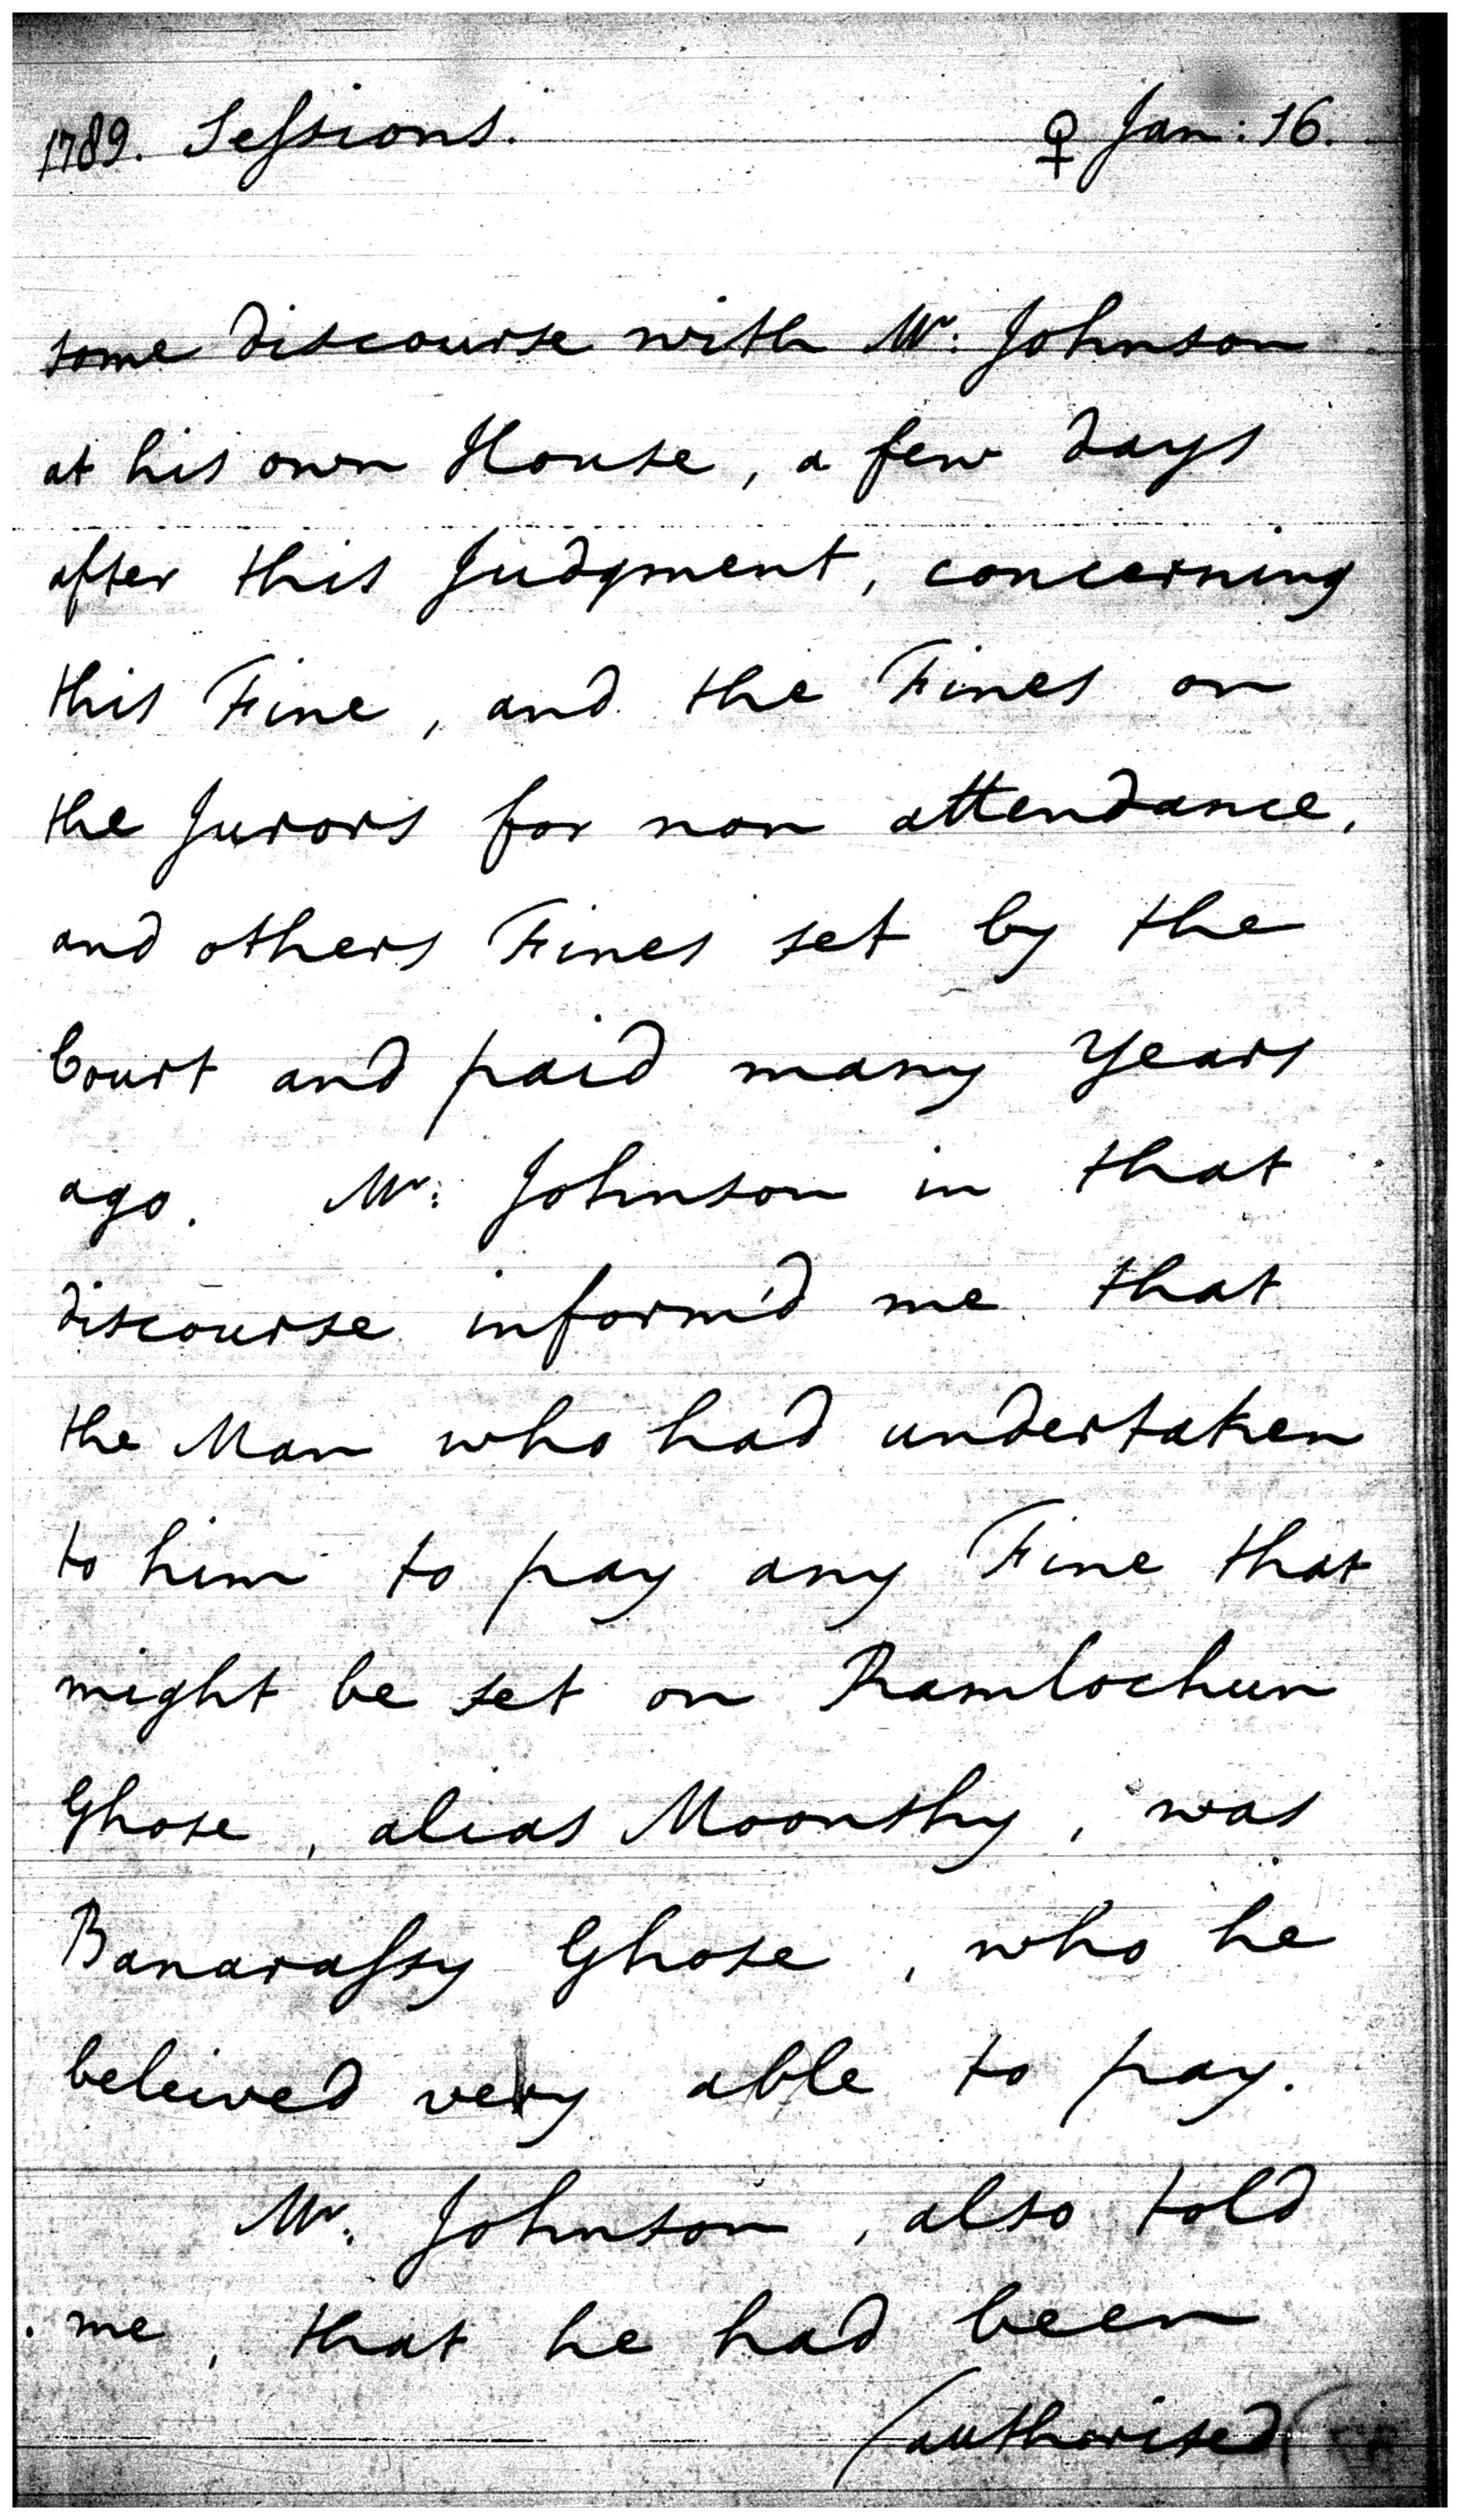 1789. Sessions. ♀ Jan: 16.
some discourse with Mr: Johnson
at his own House, a few days
after this Judgment, concerning
this Fine, and the Fines on
the Jurors for non attendance,
and others Fines set by the
Court and paid many Years
ago. Mr: Johnson in that
discourse inform'd me that
the Man who had undertaken
to him to pay any Fine that
might be set on Ramlochun
Ghose, alias Moonshy, was
Banarassy Ghose, who he
beleived very able to pay.
Mr. Johnson, also told
me, that he had been
/authorised